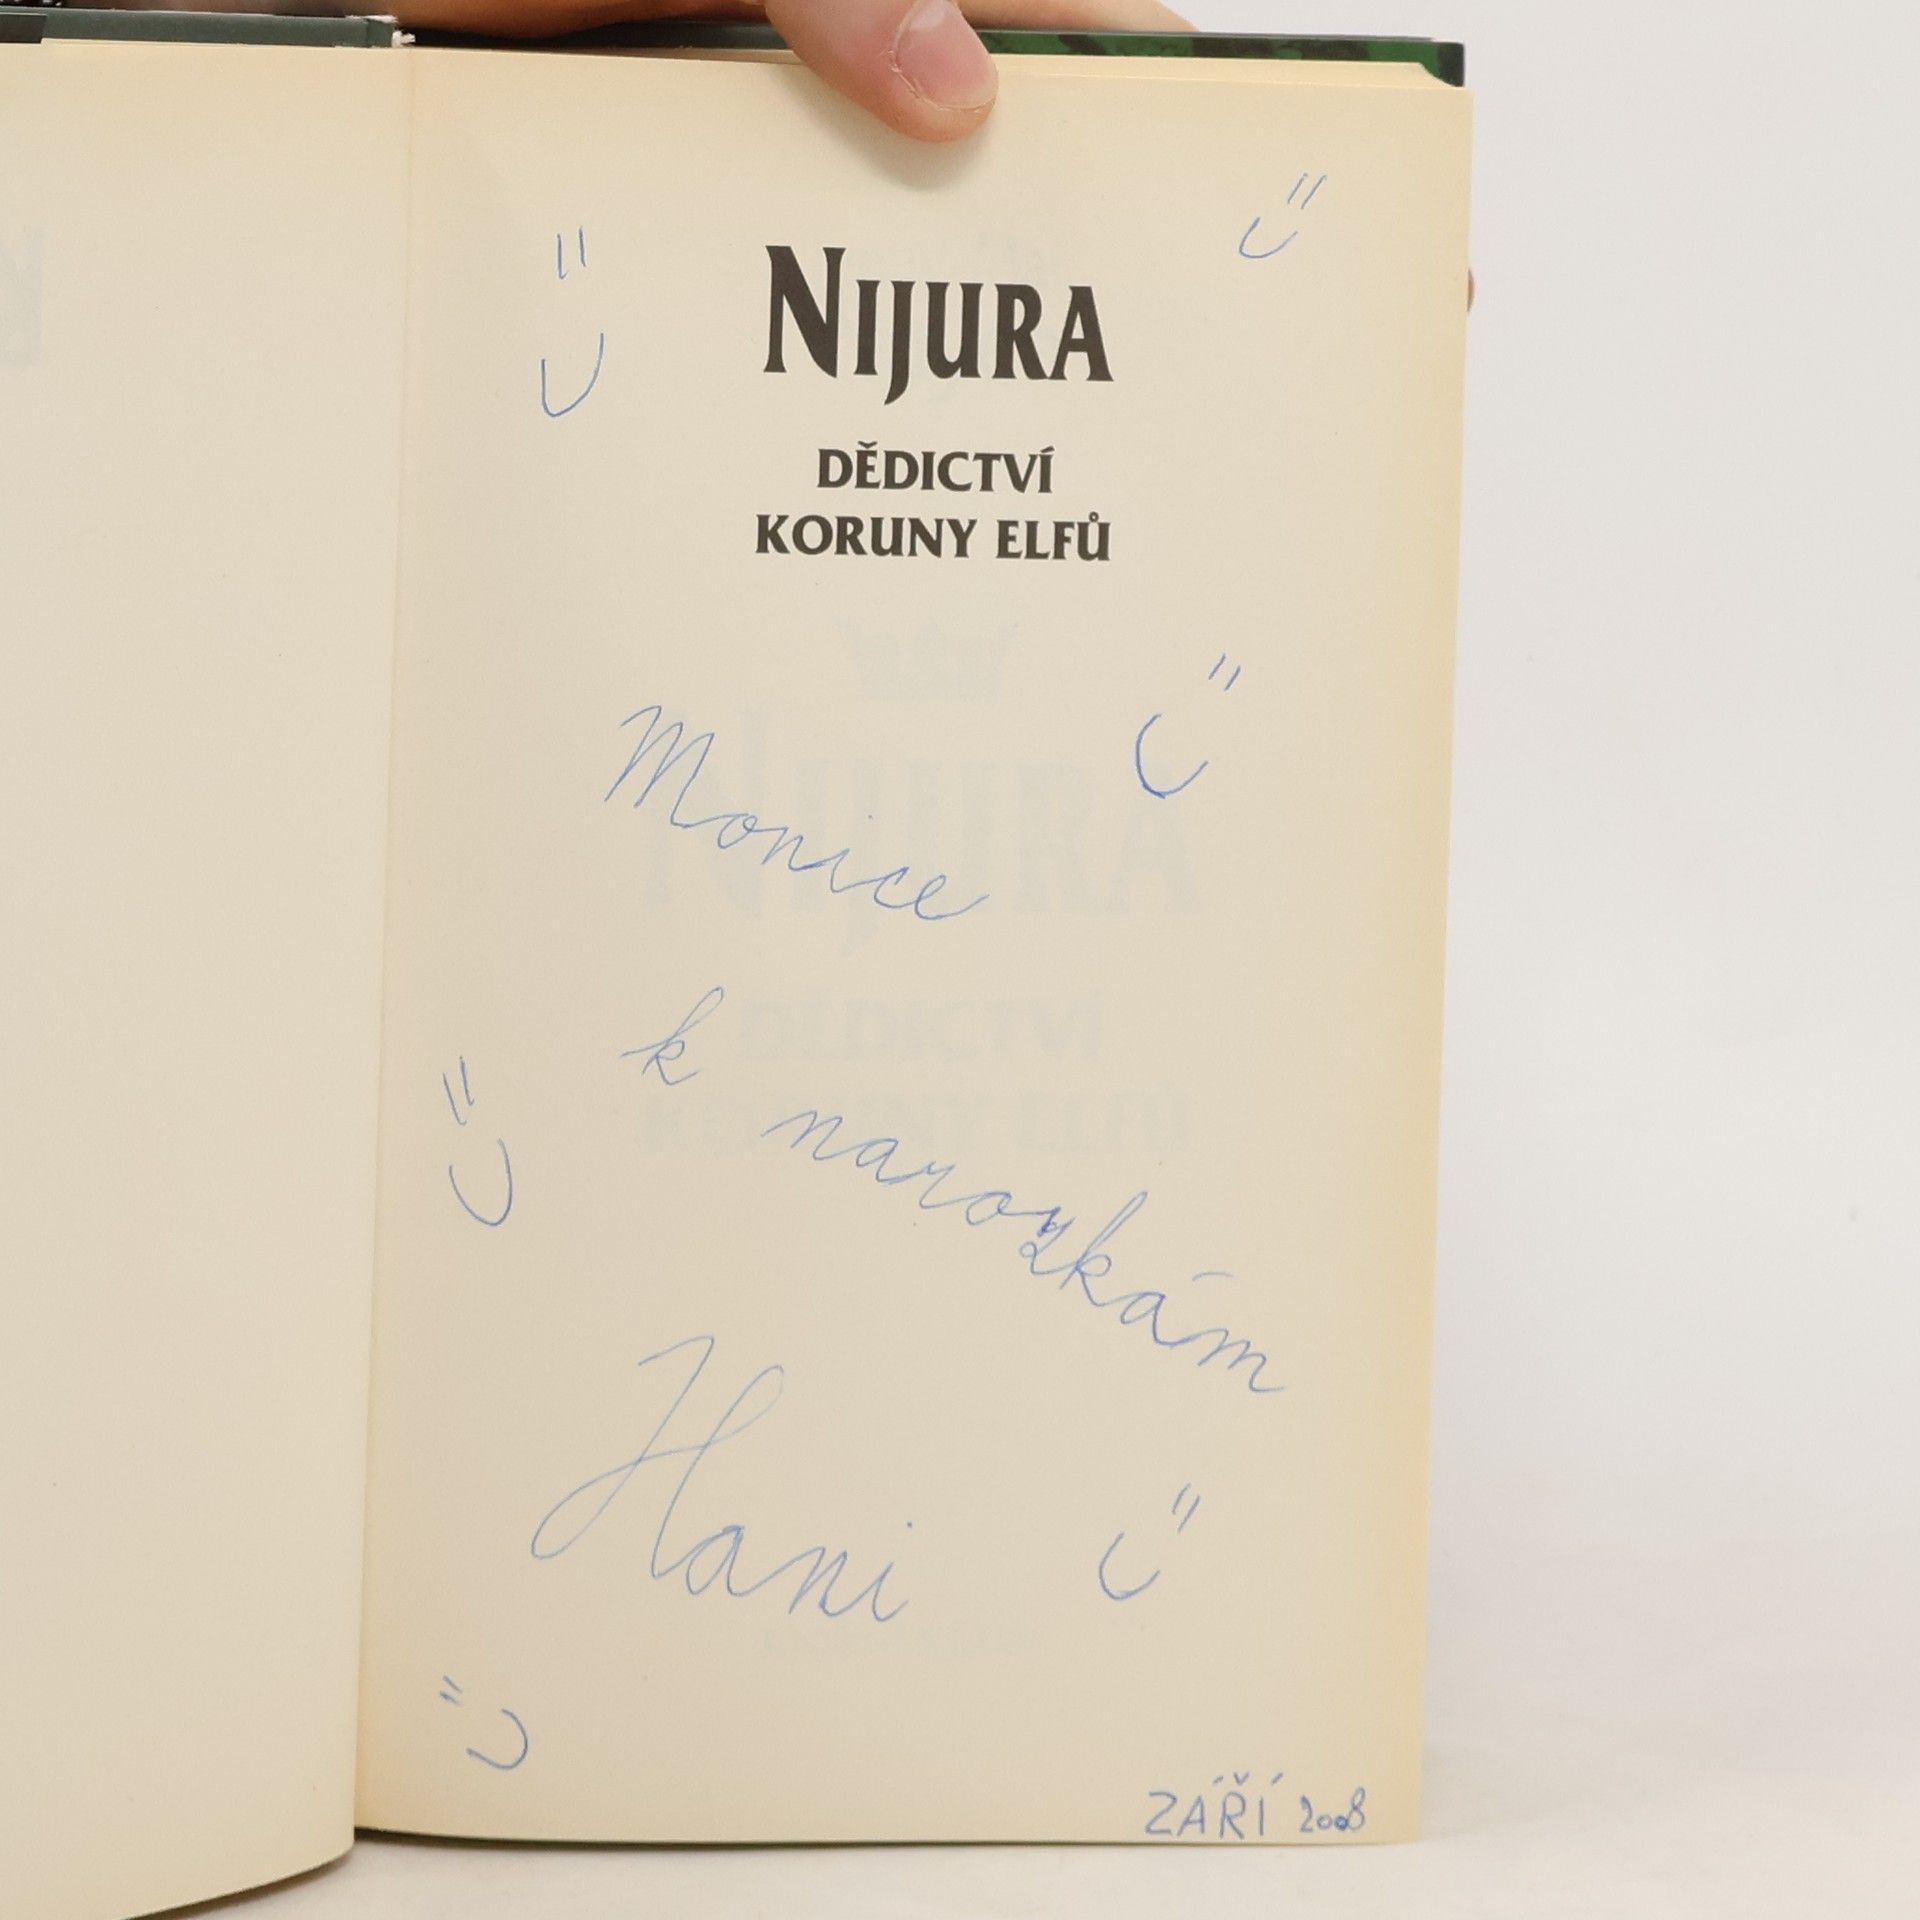 NIJURA
DĚDICTVÍ
KORUNY ELFŮ
Monice
k
narozkám
Hani
ZÁŘÍ 2008